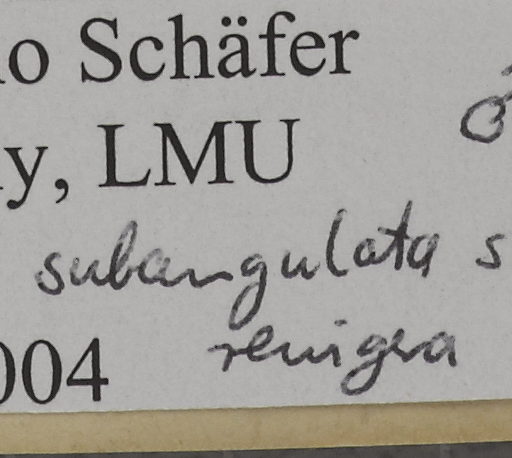 o Schäfer
y, LMU ♂
subangulata s
remigera
004